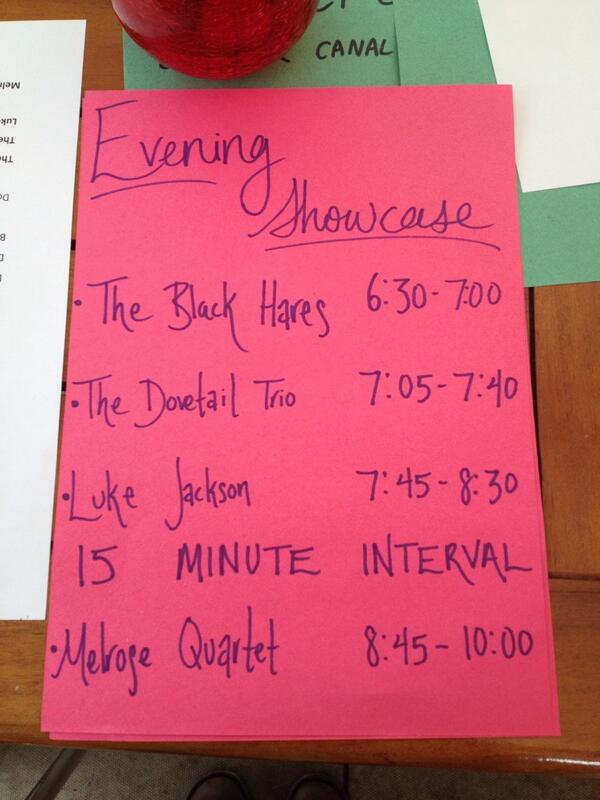 CANAL
Evening
Showcase
• The Black Hares 6:30-7:00
• The Dovetail Trio 7:05-7:40
• Luke Jackson 7:45-8:30
15 MINUTE INTERVAL
• Melrose Quartet 8:45-10:00